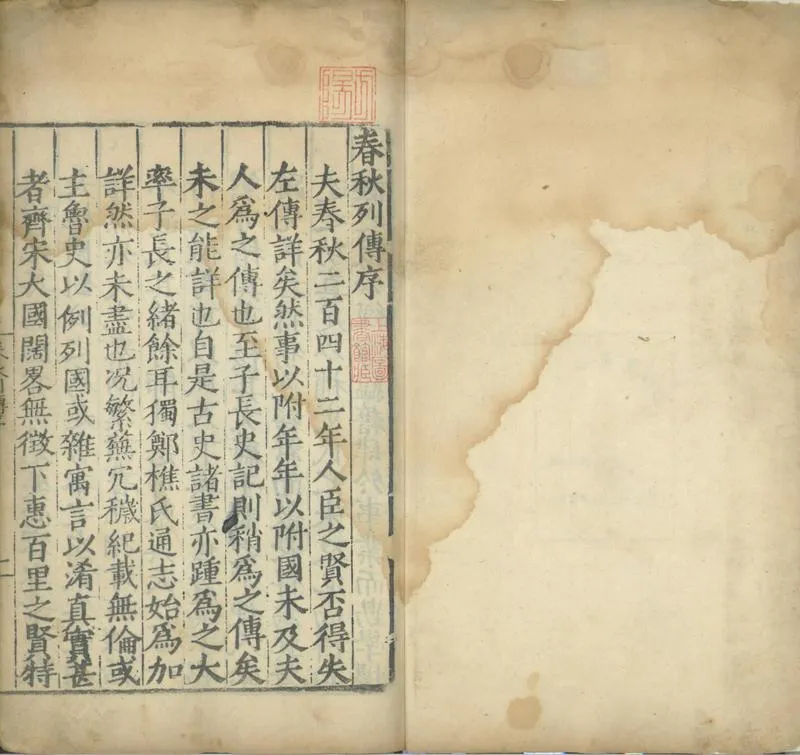 春秋列傳序
夫春秋二百四十二年人臣之賢否得失
左傳詳矣然事以附年年以附國未及夫
人爲之傳也至子長史記則稍爲之傳矣
未之能詳也自是古史諸書亦踵爲之大
率子長之緒餘耳獨鄭樵氏通志始爲加
詳然亦未盡也况繁蕪冗穢紀載無倫或
主魯史以例列國或雜寓言以淆真實甚
者齊宋大國闊畧無徵下惠百里之賢特
上海圖
書館藏